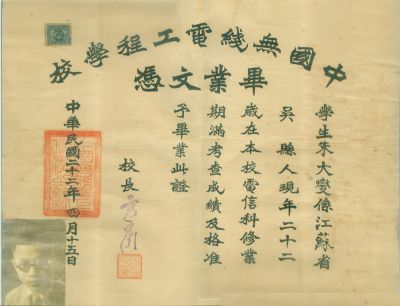 中國無綫電工程學校
畢業文憑
學生朱大爕係江蘇省
吳縣人現年二十二
歲在本校電信科修業
期滿考查成績及格准
予畢業此證
校長
中華民國二十二年四月十五日